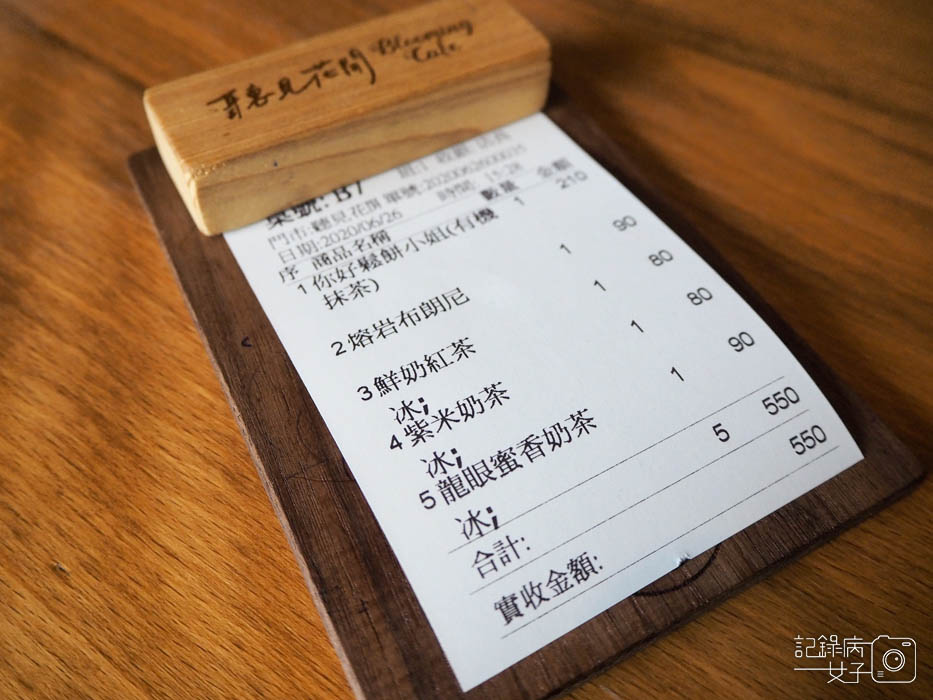 聽見花開 Blooming Cafe
桌號: B7
門市:聽見花開 單號:2020062600035
日期:2020/06/26 時間 15:28
序 商品名稱 數量 金額
1 你好鬆餅小姐(有機抹茶) 1 210
2 熔岩布朗尼 1 90
3 鮮奶紅茶 1 80
冰;
4 紫米奶茶 1 80
冰;
5 龍眼蜜香奶茶 1 90
冰;
合計: 5 550
實收金額: 550
記錄病
女子